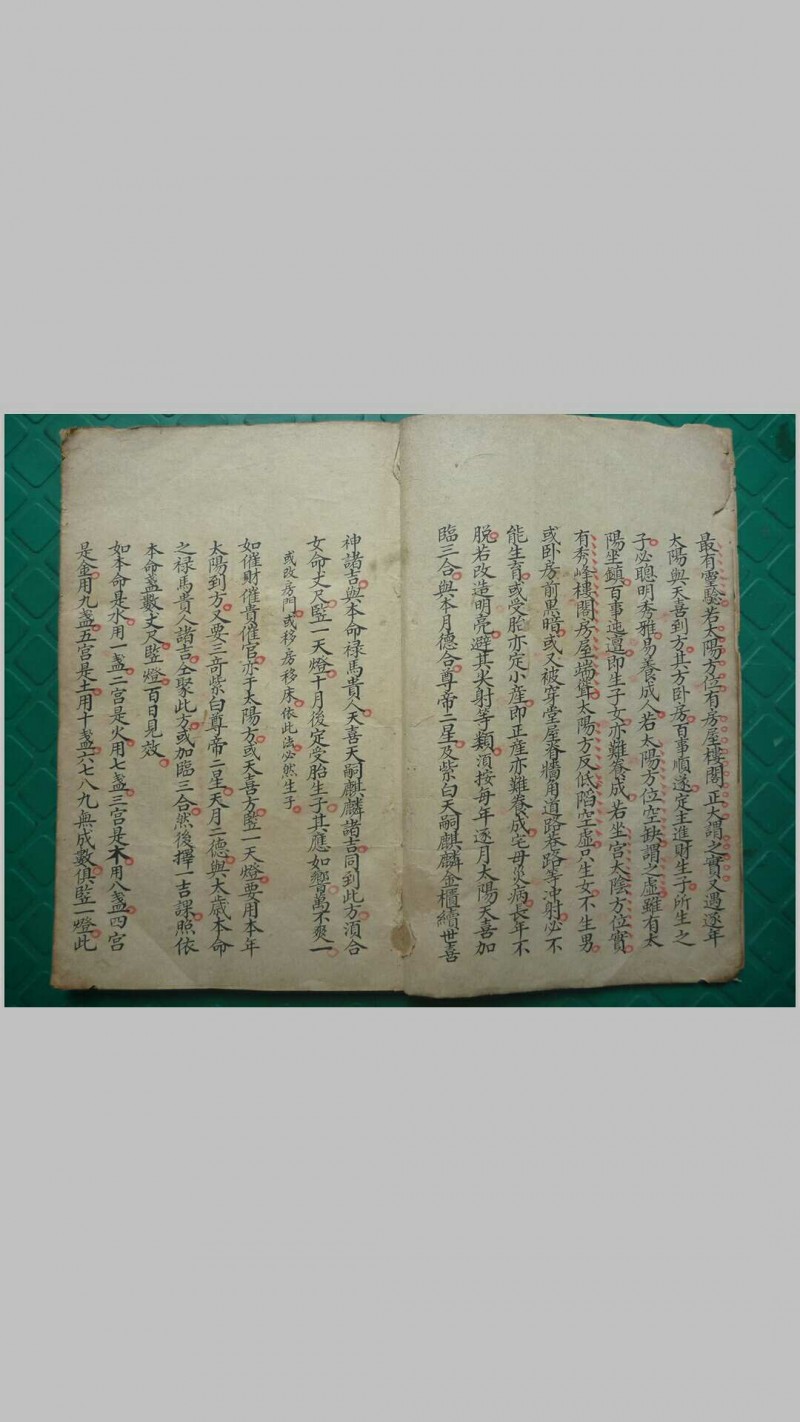 最有靈驗若太陽方位有房屋樓閣正大謂之實又遇逐年
太陽與天喜到方其方卧房百事順遂定主進財生子所生之
子必聰明秀雅易養成人若太陽方位空缺謂之虛雖有太
陽坐鎮百事迍邅即生子女亦難養成若坐宮太陰方位實
有秀峰樓閣房屋端聳太陽方反低陷空虛只生女不生男
或卧房前黑暗或又被穿堂屋脊牆角道路巷路等冲射必不
能生育或受胎亦定小產即正產亦難養成宅母災病長年不
脫若改造明亮避其尖射等類須按每年逐月太陽天喜加
臨三合與本月德合尊帝二星及紫白天嗣麒麟金櫃續世喜
神諸吉與本命禄馬貴人天喜天嗣麒麟諸吉同到此方須合
女命丈尺竪一天燈十月後定受胎生子其應如響萬不爽一
或改房門或移房移床依此法必然生子
如催財催貴催官亦于太陽方或天喜方竪一天燈要用本年
太陽到方又要三奇紫白尊帝二星天月二德與太歲本命
之禄馬貴人諸吉仝聚此方或加臨三合然後擇一吉課照依
本命盞數丈尺竪燈百日見效
如本命是水用一盞二宫是火用七盞三宫是木用八盞四宫
是金用九盞五宫是土用十盞六七八九無成數俱竪一燈此